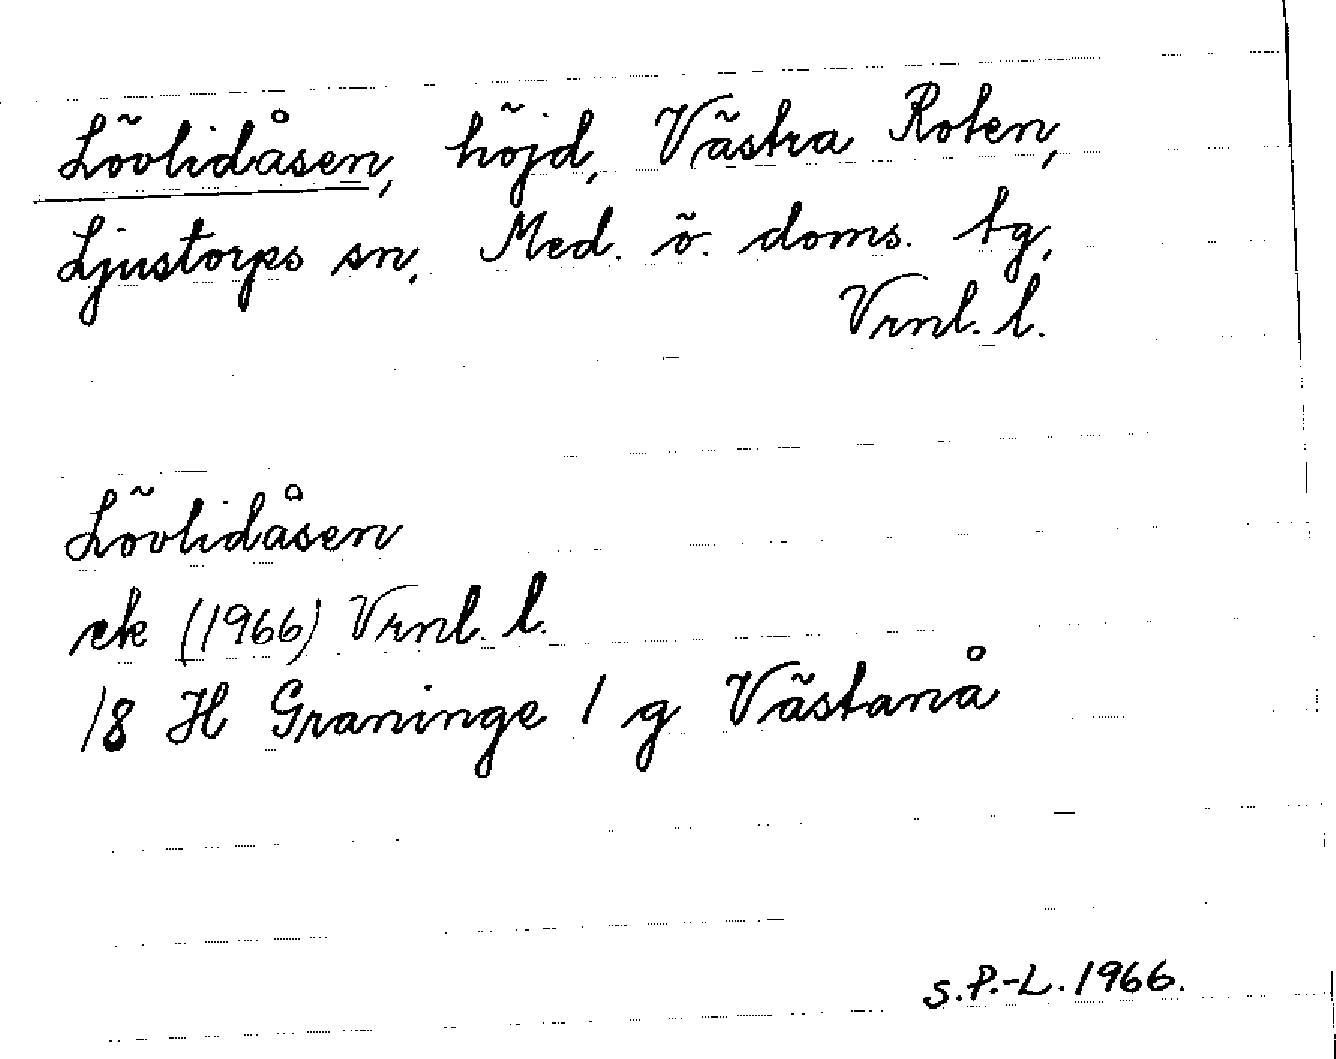 Lövlidåsen, höjd, Västra Roten,
Ljustorps sn, Med. ö. doms. tg,
Vrnl. l.
Lövlidåsen
ek (1966) Vrnl. l.
18 H Graninge 1 g Västanå
S.P.-L. 1966.